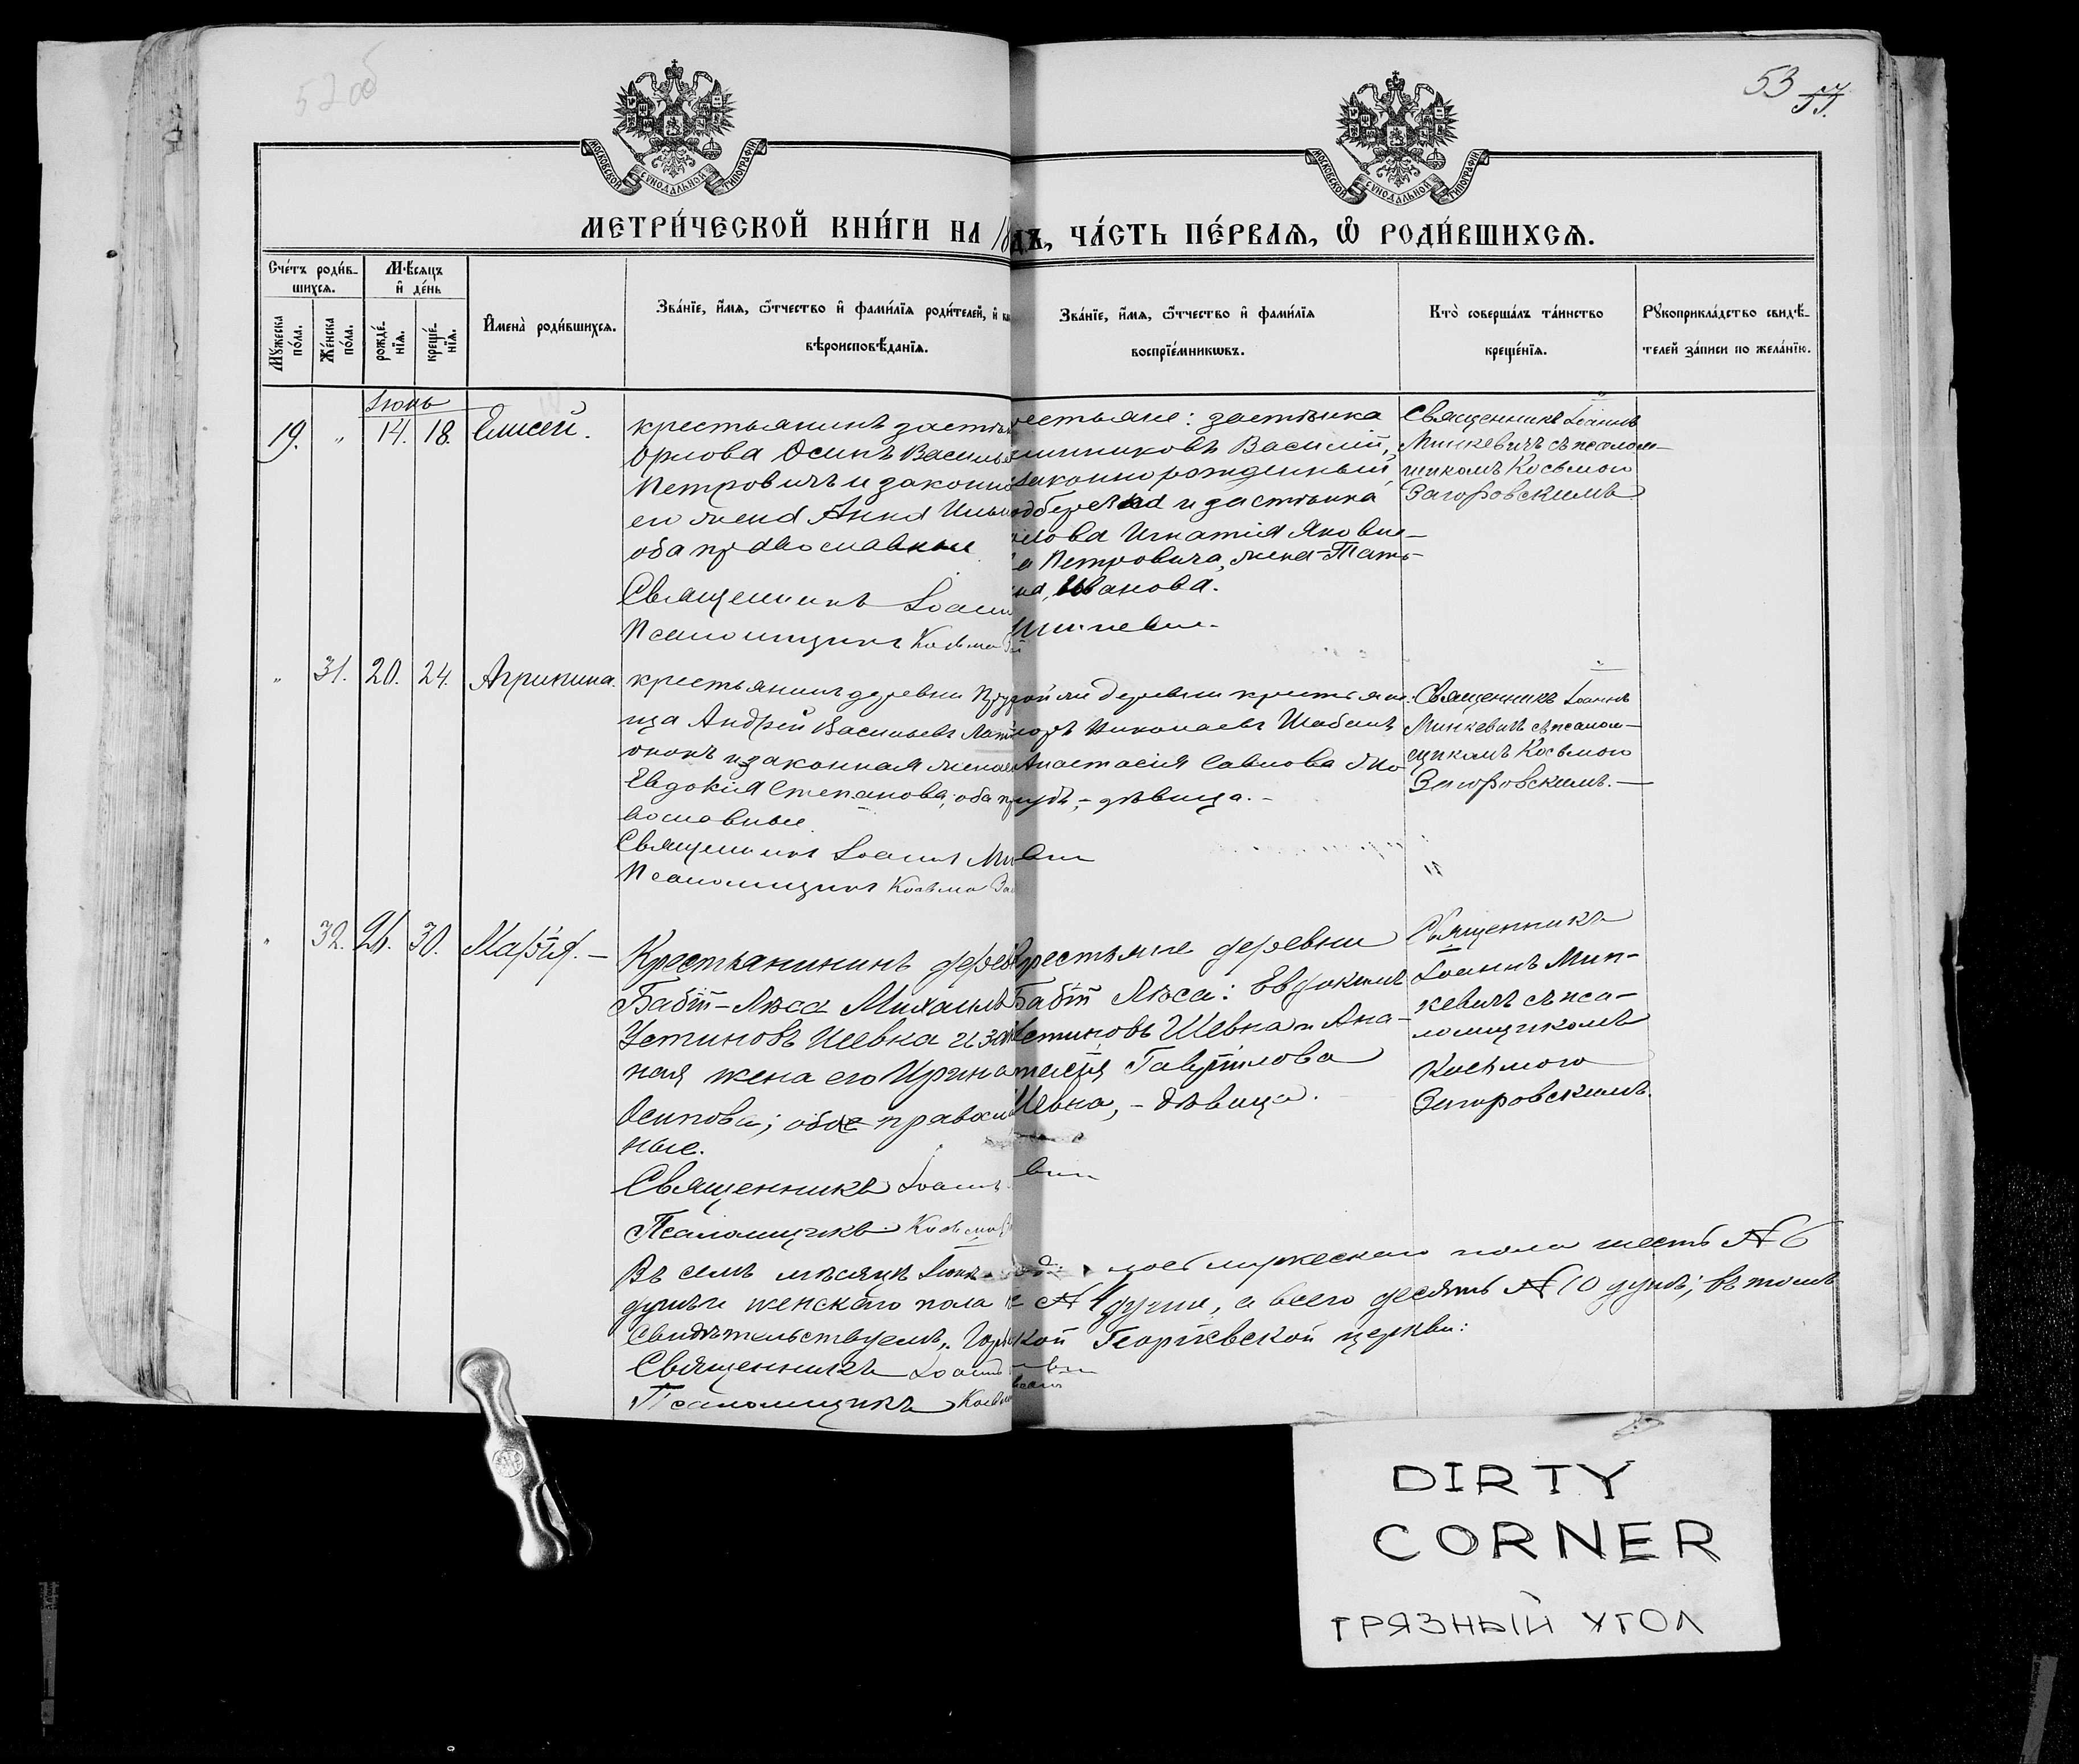 52 об
53
МОСКОВСКОЙ СѴНОДАЛЬНОЙ ТИПОГРАФІИ
МОСКОВСКОЙ СѴНОДАЛЬНОЙ ТИПОГРАФІИ
МЕТРИ́ЧЕСКОЙ КНИ́ГИ НА 18
дъ, ЧА́СТЬ ПЕ́РВАѦ, Ѡ҆ РОДИ́ВШИХСѦ.
Сче́тъ роди́в-
шихсѧ.
Мѣ́сѧцъ
и҆ де́нь
Мꙋ́жеска
по́ла.
Же́нска
по́ла.
рожде́-
нїѧ.
креще́-
нїѧ.
И҆мена̀ роди́вшихсѧ.
Зва́нїе, и҆́мѧ, ѻ҆́тчество и҆ фами́лїѧ роди́телей, и҆
вѣроисповѣ́данїѧ.
Зва́нїе, и҆́мѧ, ѻ҆́тчество и҆ фами́лїѧ
воспрїе́мникѡвъ.
Кто̀ соверша́лъ та́инство
креще́нїѧ.
Рꙋкоприкла́дство свидѣ́-
телей за́писи по жела́нїю.
Іюнь
19. " 14. 18. Елисей.
крестьянинъ застѣн
Орлова Осипъ Василье
Петровичъ и законно
его жена Анна Ильи
оба православные
Священникъ Іоан
Псаломщикъ Косьма За
естьяне: застѣнка
Василий,
законнорожденный
одбережа и застѣнка
лова Игнатія Яковле-
а Петровича, жена Тать-
на, Иванова.
Священникъ Іоаннъ
Минкевичъ съ псалом-
щикомъ Косьмою
Загоровскимъ
" 31. 20. 24. Агрипина.
крестьянинъ деревни Пру
ца Андрей Васильевъ Лат
онокъ и законная жена е
Евдокія Степанова, оба пр
вославные.
Священникъ Іоаннъ Ми
Псаломщикъ Косьма За
той же деревни крестьяне:
Николаевъ Шабанъ
Анастасія Савлова
нубъ, - дѣвица. -
Священникъ Іоаннъ
Минкевичъ съ псалом-
щикомъ Косьмою
Загоровскимъ. -
" 32. 26. 30. Марѳія. -
Крестьянининъ дерев
Бабій-Лѣса Михаилъ
Устиновъ Шевка и зак
ная жена его Ирина
Осипова; оба православ
ные.
Священникъ Іоаннъ
Псаломщикъ Косьма
Крестьяне деревни
Бабій Лѣса: Евдокимъ
Устиновъ Шевка и Ана-
тасія Гавріилова
Шевка, - дѣвица.
Священникъ
Іоаннъ Мин-
кевичъ съ пса-
ломщикомъ
Косьмою
Загоровскимъ.
Въ семъ мѣсяцѣ Іюнѣ мужескаго пола шесть № 6
душъ и женскаго пола № 4 души, а всего десять № 10 душъ; въ томъ
свидѣтельствуемъ, кой Георгіевской церкви:
Священникъ Іоаннъ
Псаломщикъ Косьма
DIRTY
CORNER
ГРЯЗНЫЙ УГОЛ